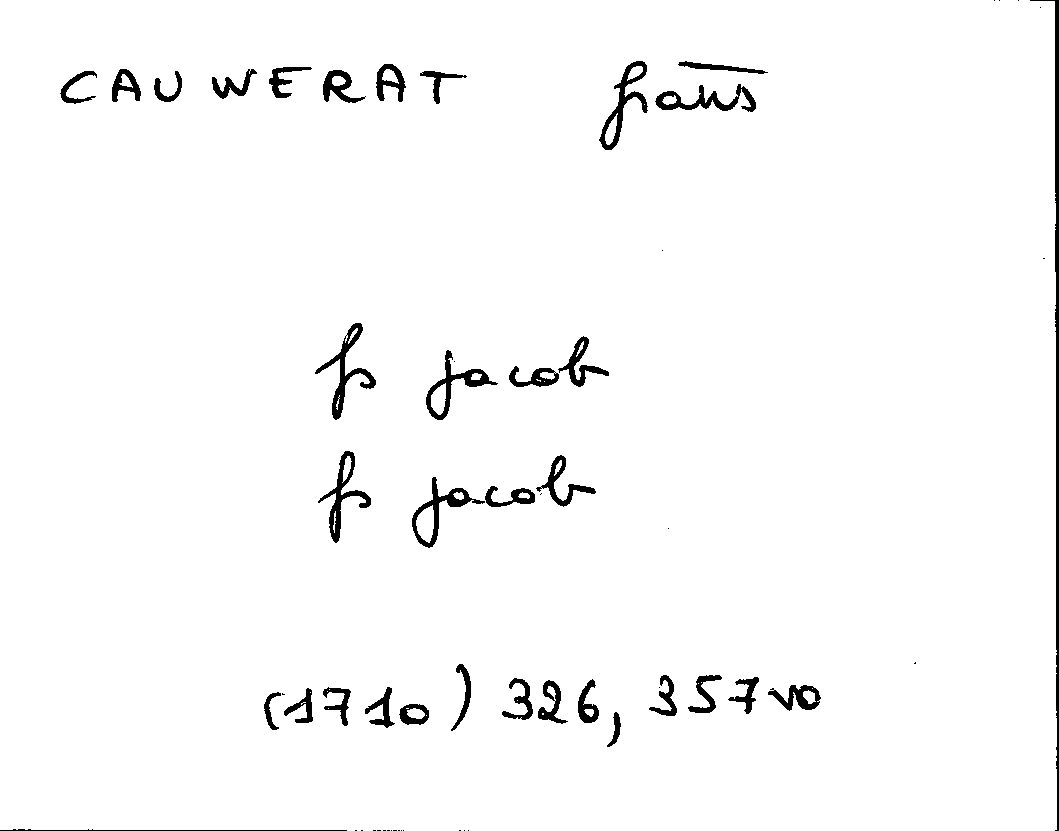 CAUWERAT frans
fs jacob
fs jacob
(1710) 326, 357vo